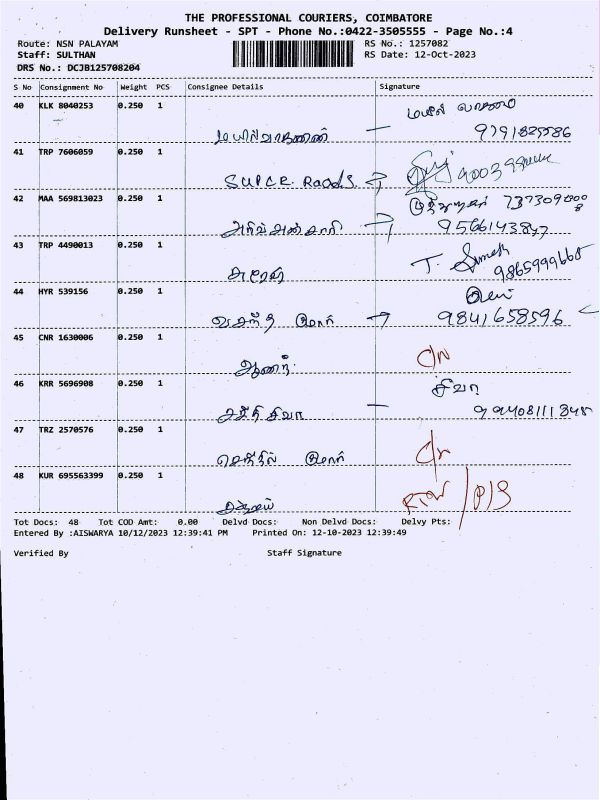 THE PROFESSIONAL COURIERS, COIMBATORE
Delivery Runsheet - SPT - Phone No.:0422-3505555 - Page No.:4
Route: NSN PALAYAM
RS No.: 1257082
Staff: SULTHAN
RS Date: 12-Oct-2023
DRS No.: DCJB125708204
S No Consignment No Weight PCS Consignee Details Signature
40 KLK 8040253 0.250 1
மயில்வாகனன்
41 TRP 7606059 0.250 1
42 MAA 569813023 0.250 1
9566143847
43 TRP 4490013 0.250 1
T. 9865999668
44 HYR 539156 0.250 1
வசந்த் குமார் 9841658596
45 CNR 1630006 0.250 1
ஆனந்த்
46 KRR 5696908 0.250 1
சிவா
சக்தி சிவா
47 TRZ 2570576 0.250 1
செந்தில் குமார்
48 KUR 695563399 0.250 1
Tot Docs: 48 Tot COD Amt: 0.00 Delvd Docs: Non Delvd Docs: Delvy Pts:
Entered By :AISWARYA 10/12/2023 12:39:41 PM Printed On: 12-10-2023 12:39:49
Verified By Staff Signature